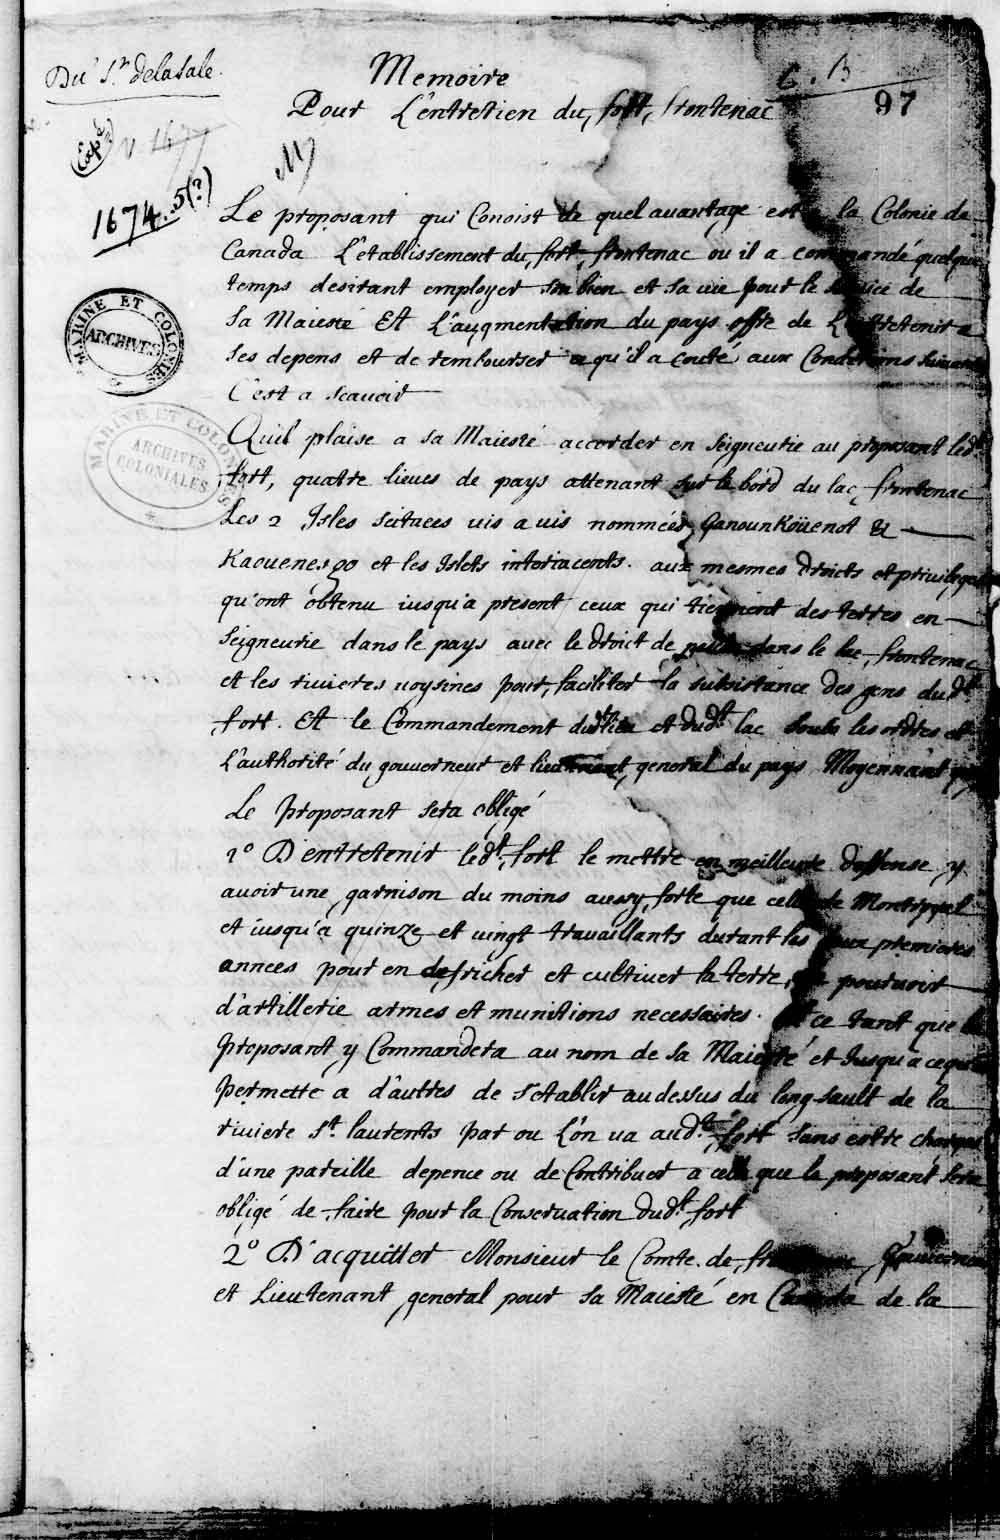 Du Sr. delasale.
Memoire
Pour L'entretien du fort frontenac
6. B
97
(Expé)
v 1677
1674..5(?)
M
MARINE ET COLONIES
ARCHIVES
MARINE ET COLONIES
ARCHIVES
COLONIALES
Le proposant qui Conoist de quel avantage est a la Colonie de
Canada L'etablissement du fort frontenac ou il a commandé quelque
temps desirant employer son bien et sa vie pour le service de
Sa Maiesté Et L'augmentation du pays offre de L'entretenir a
ses depens et de rembourser ce qu'il a couté aux Conditions suivantes
C'est a scavoir
Quil plaise a sa Maiesté accorder en seigneurie au proposant ledt.
fort, quatre lieues de pays attenant sur le bord du lac frontenac
Les 2 Isles scituees vis a vis nommées Ganounkoüenot &
Kaouenesgo et les Islets interiacents. aux mesmes droicts et privileges
qu'ont obtenu iusqu'a present ceux qui tiennent des terres en
Seigneurie dans le pays avec le droict de pesche dans le lac frontenac
et les rivieres voysines pour faciliter la subsistance des gens dudt.
fort. Et le Commandement dudt lieu et dudt. lac soubs les ordres et
L'authorité du gouverneur et lieutenant general du pays Moyennant quoy
Le proposant sera obligé
1o D'entretenir ledt. fort le mettre en meilleure deffense y
avoir une garnison du moins aussy forte que celle de Montreyal
et iusqu'a quinze et vingt travaillants durant les deux premieres
annees pour en defricher et cultiver la terre, le pourvoir
d'artillerie armes et munitions necessaires. Et ce tant que le
proposant y Commandera au nom de sa Maiesté et Jusqu'a ce qu'elle
permette a d'autres de s'etablir au dessus du long-sault de la
riviere St. laurents par ou L'on va audt. fort sans estre chargés
d'une pareille depence ou de Contribuer a celle que le proposant sera
obligé de faire pour la Conservation dudt. fort
2o D'acquitter Monsieur le Comte de frontenac Gouverneur
et Lieutenant general pour sa Maiesté en Canada de la